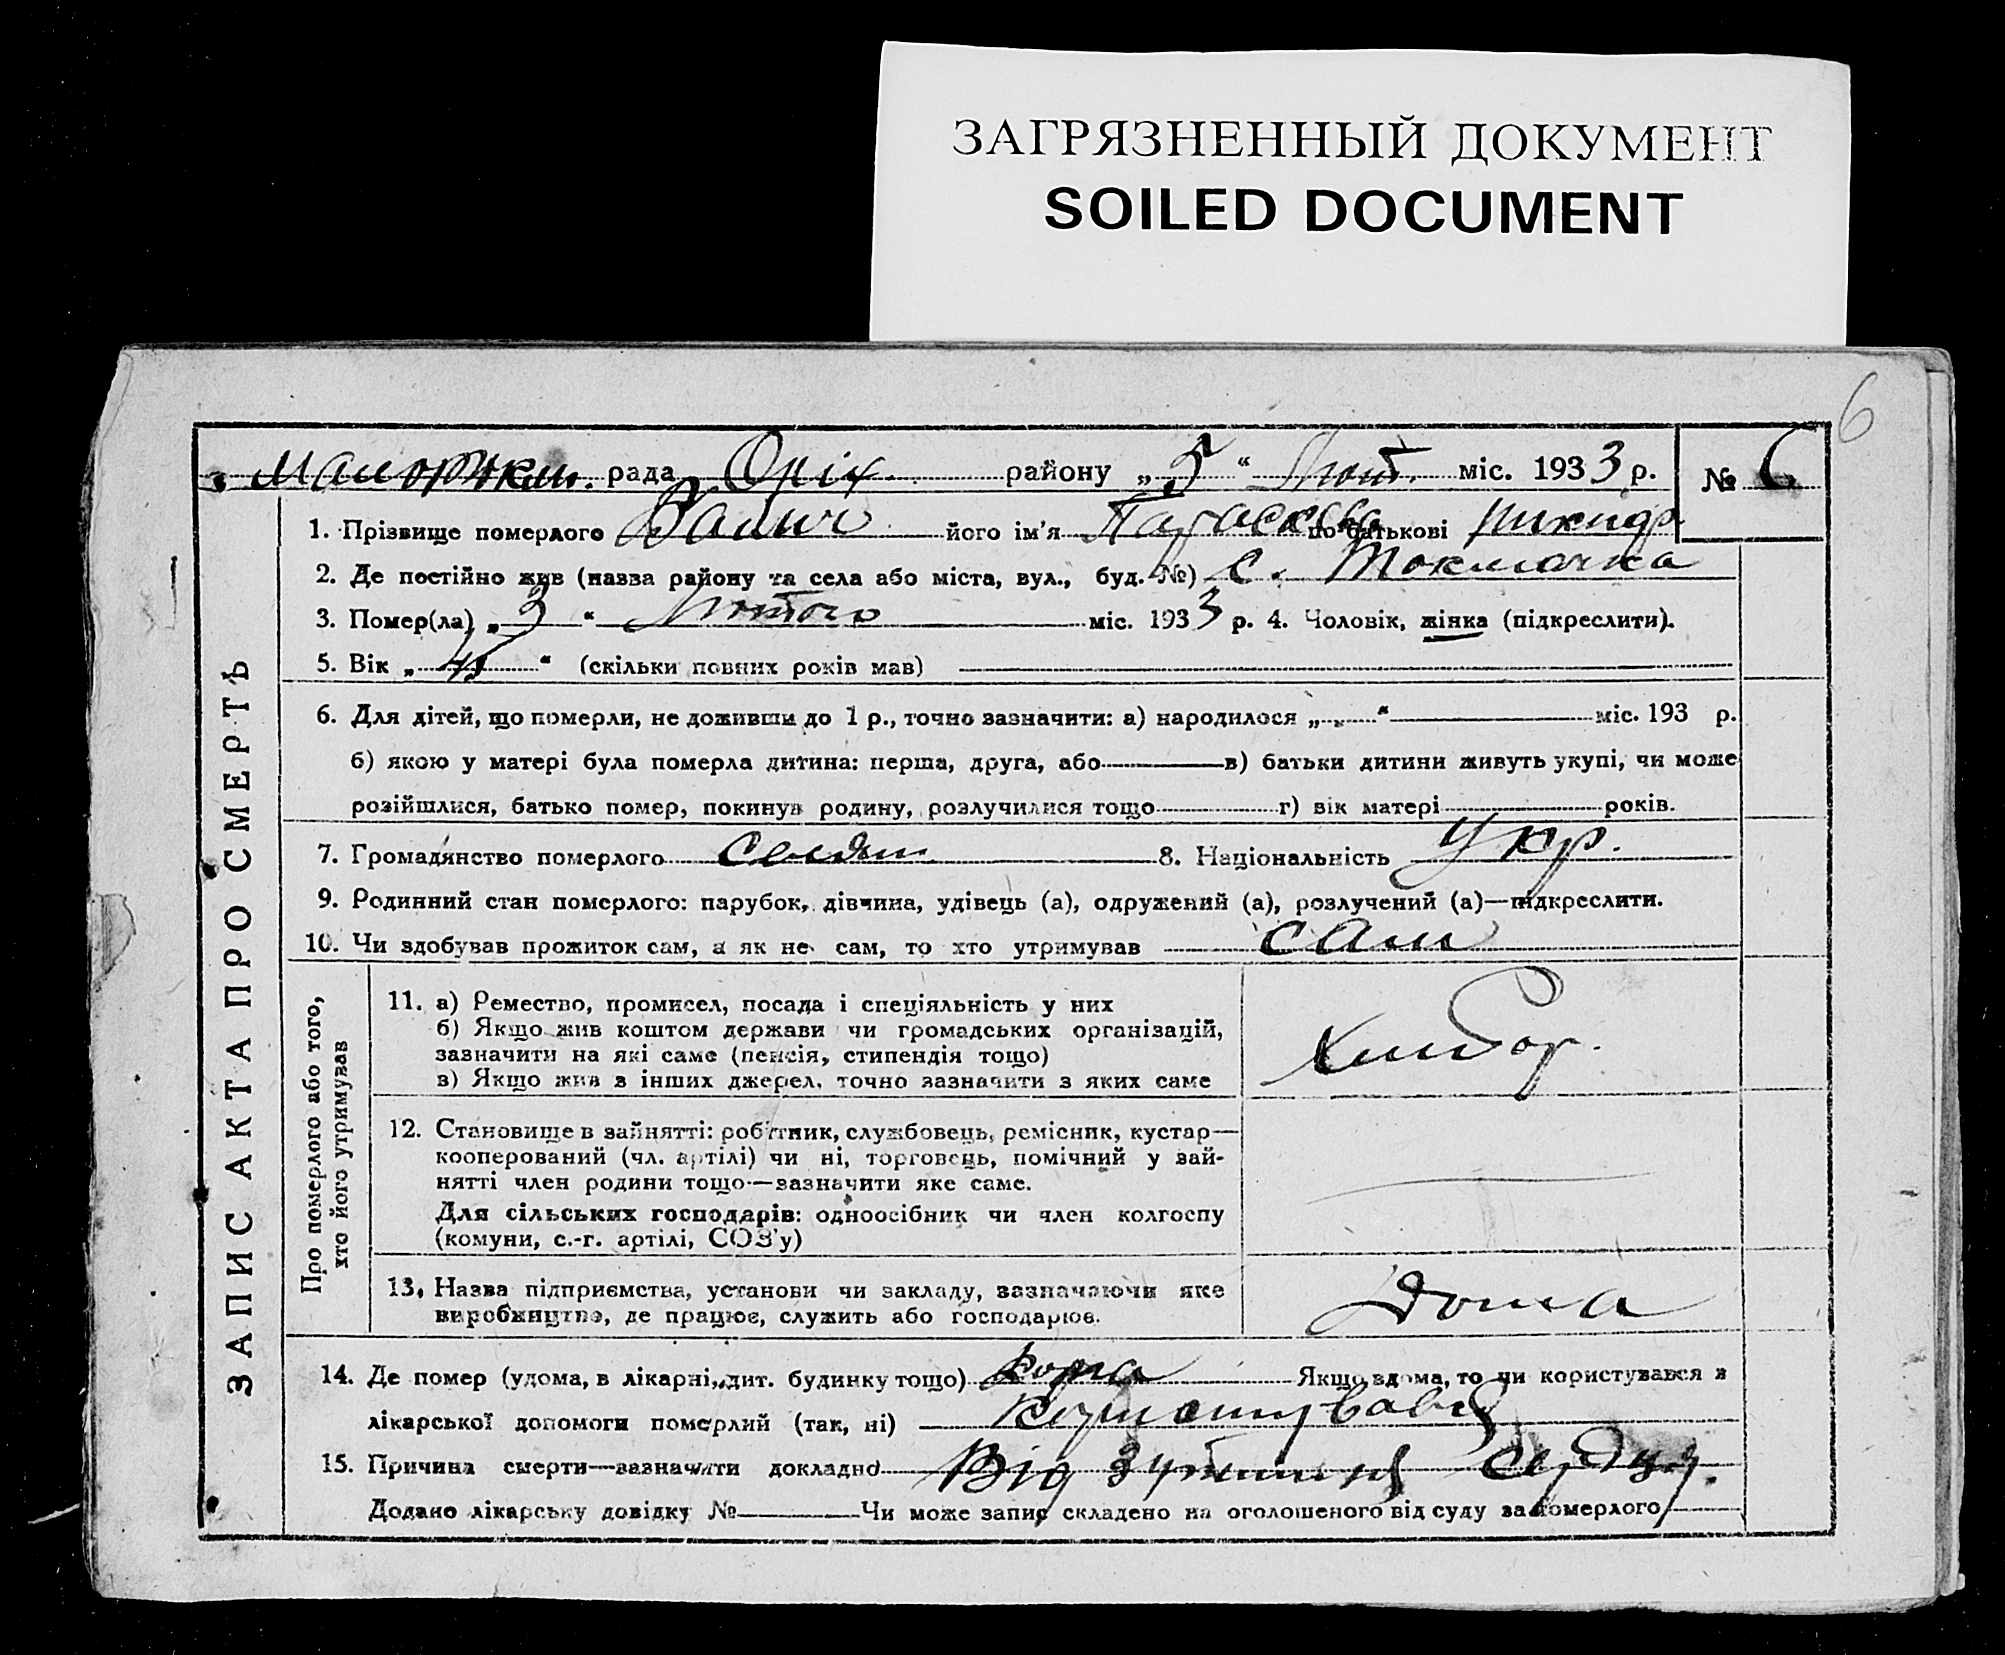 ЗАГРЯЗНЕННЫЙ ДОКУМЕНТ
SOILED DOCUMENT
6
рада Оріх району „ 5 “ Лют. міс. 1933 р. № 6
1. Прізвище померлого його ім’я Параска по батькові Никиф.
2. Де постійно жив (назва району та села або міста, вул., буд. №) с. Токмачка
3. Помер(ла) „ 3 “ Лютого міс. 1933 р. 4. Чоловік, жінка (підкреслити).
5. Вік „ 45 “ (скільки повних років мав)
6. Для дітей, що померли, не доживши до 1 р., точно зазначити: а) народилося „ “ міс. 193 р.
б) якою у матері була померла дитина: перша, друга, або в) батьки дитини живуть укупі, чи може
розійшлися, батько помер, покинув родину, розлучилися тощо г) вік матері років.
7. Громадянство померлого селян 8. Національність Укр.
9. Родинний стан померлого: парубок, дівчина, удівець (а), одружений (а), розлучений (а)—підкреслити.
10. Чи здобував прожиток сам, а як не сам, то хто утримував сам
ЗАПИС АКТА ПРО СМЕРТЬ
Про померлого або того,
хто його утримував
11. а) Ремество, промисел, посада і спеціяльність у них
б) Якщо жив коштом держави чи громадських організацій,
зазначити на які саме (пенсія, стипендія тощо)
в) Якщо жив з інших джерел, точно зазначити з яких саме
Хлибор.
12. Становище в зайнятті: робітник, службовець, ремісник, кустар—
кооперований (чл. артілі) чи ні, торговець, помічний у зай-
нятті член родини тощо—зазначити яке саме.
Для сільських господарів: одноосібник чи член колгоспу
(комуни, с.-г. артілі, СОЗ’у)
13. Назва підприємства, установи чи закладу, зазначаючи яке
виробництво, де працює, служить або господарює.
Дома
14. Де помер (удома, в лікарні, дит. будинку тощо) дома Якщо вдома, то чи користувався з
лікарської допомоги померлий (так, ні) користувався
15. Причина смерти—зазначити докладно Від сердця.
Додано лікарську довідку № Чи може запис складено на оголошеного від суду за померлого